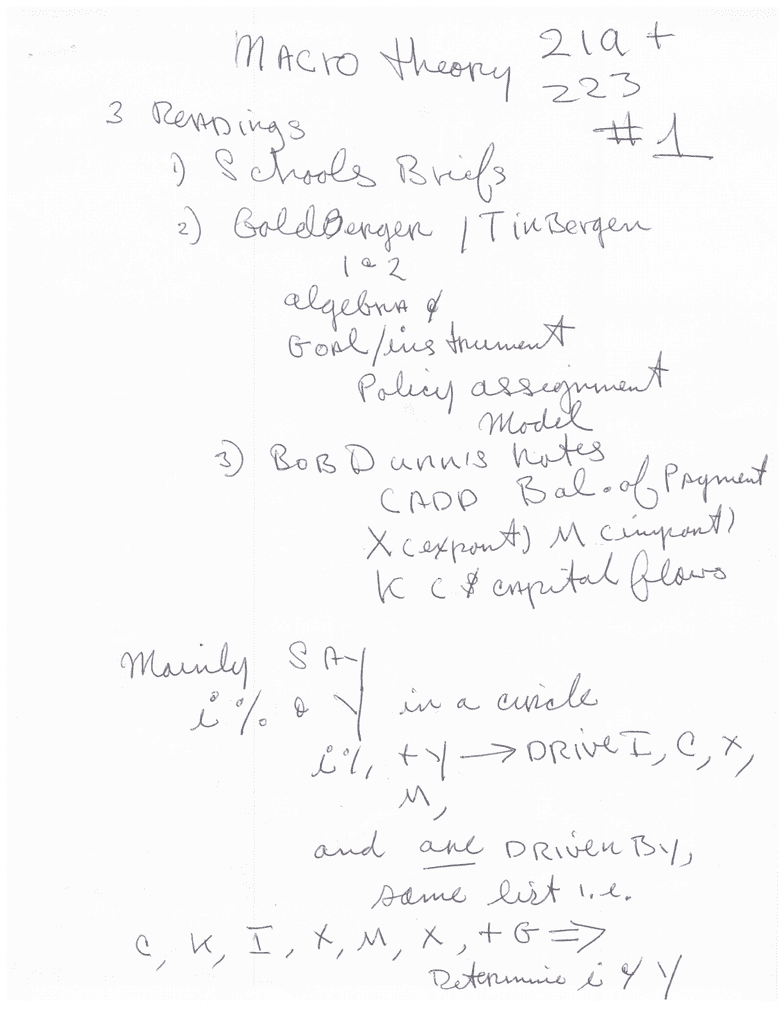 Macro theory 219 +
223
#1
3 Readings
1) Schools Briefs
2) GoldBerger / TinBergen
1 & 2
algebra &
Goal/instrument
Policy assignment
Model
3) BOB Dunn's notes
(ADD Bal. of Payment
X (export) M (import)
K ( $ capital flows
Mainly SAY
i% & Y in a circle
i%, + Y → DRIVE I, C, X,
M,
and are DRIVEN BY,
same list i.e.
C, K, I, X, M, X, + G ⇒
Determine i & Y